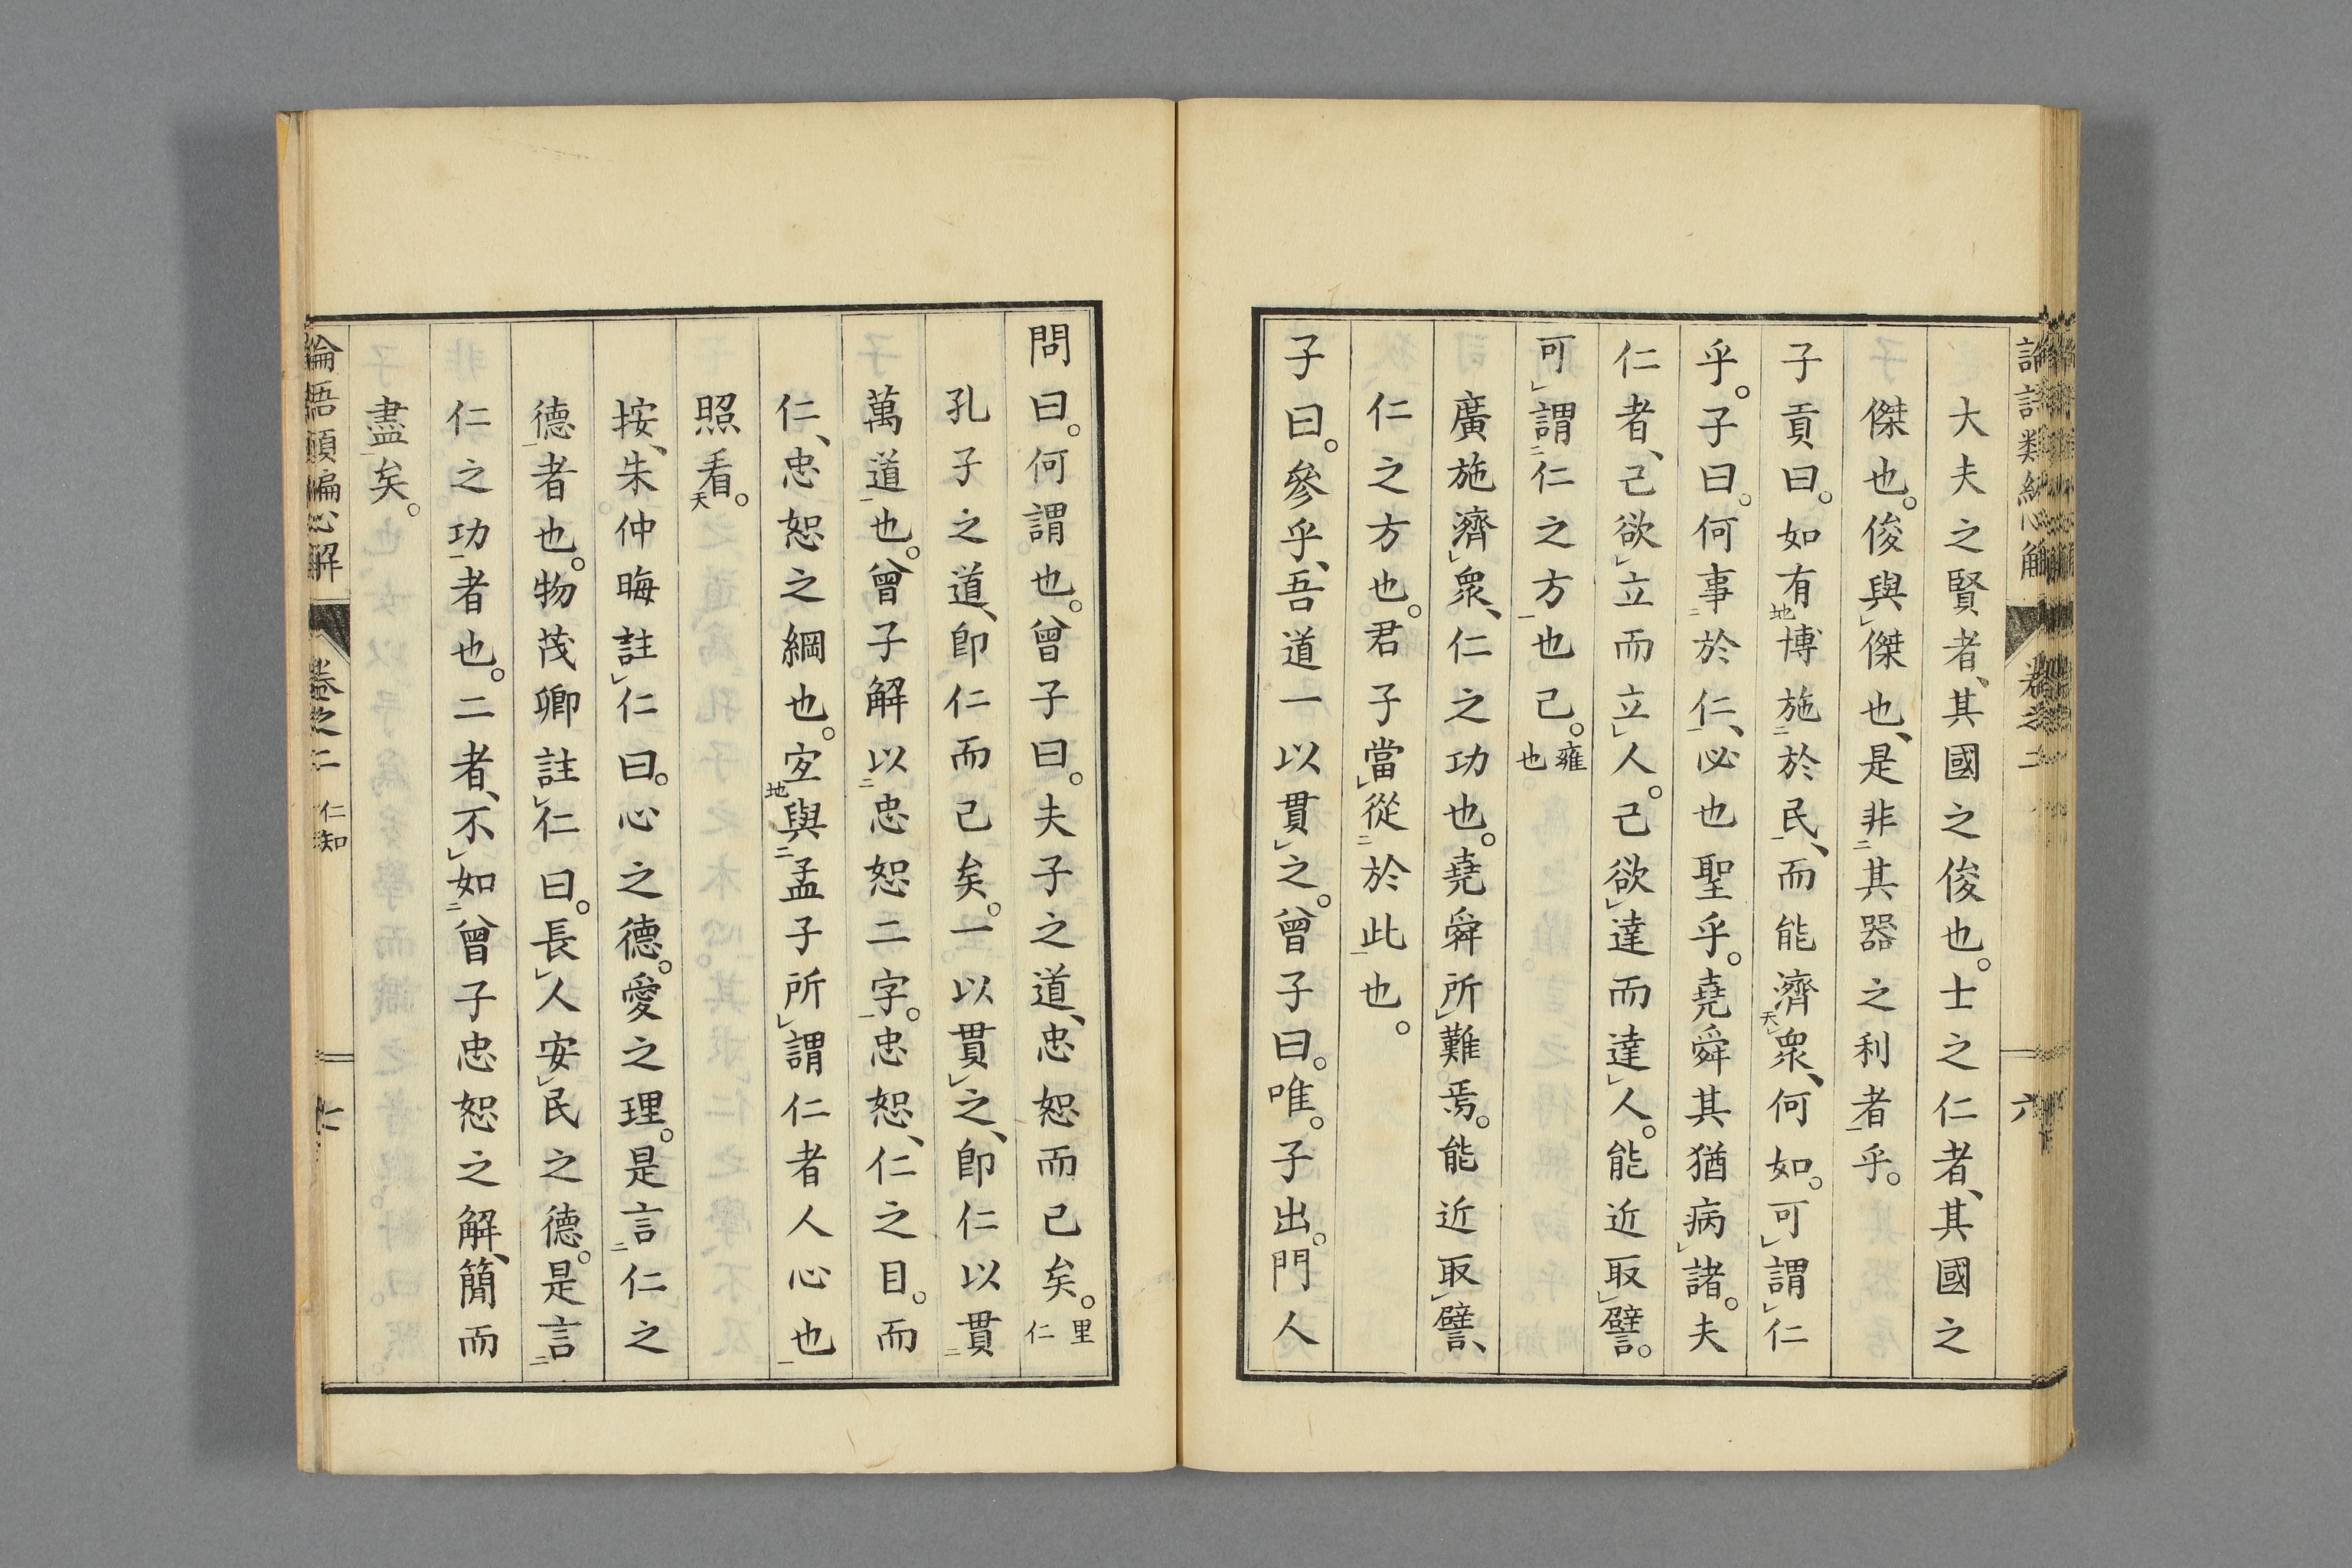 大夫之賢者、其國之俊也。士之仁者、其國之
傑也。俊與傑也、是非其器之利者乎。
子貢曰。如有博施於民、而能濟衆、何如。可謂仁
乎。子曰。何事於仁、必也聖乎。堯舜其猶病諸。夫
仁者、己欲立而立人。己欲達而達人。能近取譬。
可謂仁之方也已。雍也
廣施濟衆、仁之功也。堯舜所難焉。能近取譬、
仁之方也。君子當從於此也。
子曰。參乎、吾道一以貫之。曾子曰。唯。子出。門人
問曰。何謂也。曾子曰。夫子之道、忠恕而已矣。里仁
孔子之道、卽仁而已矣。一以貫之、卽仁以貫
萬道也。曾子解以忠恕二字。忠恕、仁之目。而
仁、忠恕之綱也。宐與孟子所謂仁者人心也
照看。
按、朱仲晦註仁曰。心之德。愛之理。是言仁之
德者也。物茂卿註仁曰。長人安民之德。是言
仁之功者也。二者、不如曾子忠恕之解、簡而
盡矣。
卷之二 仁知